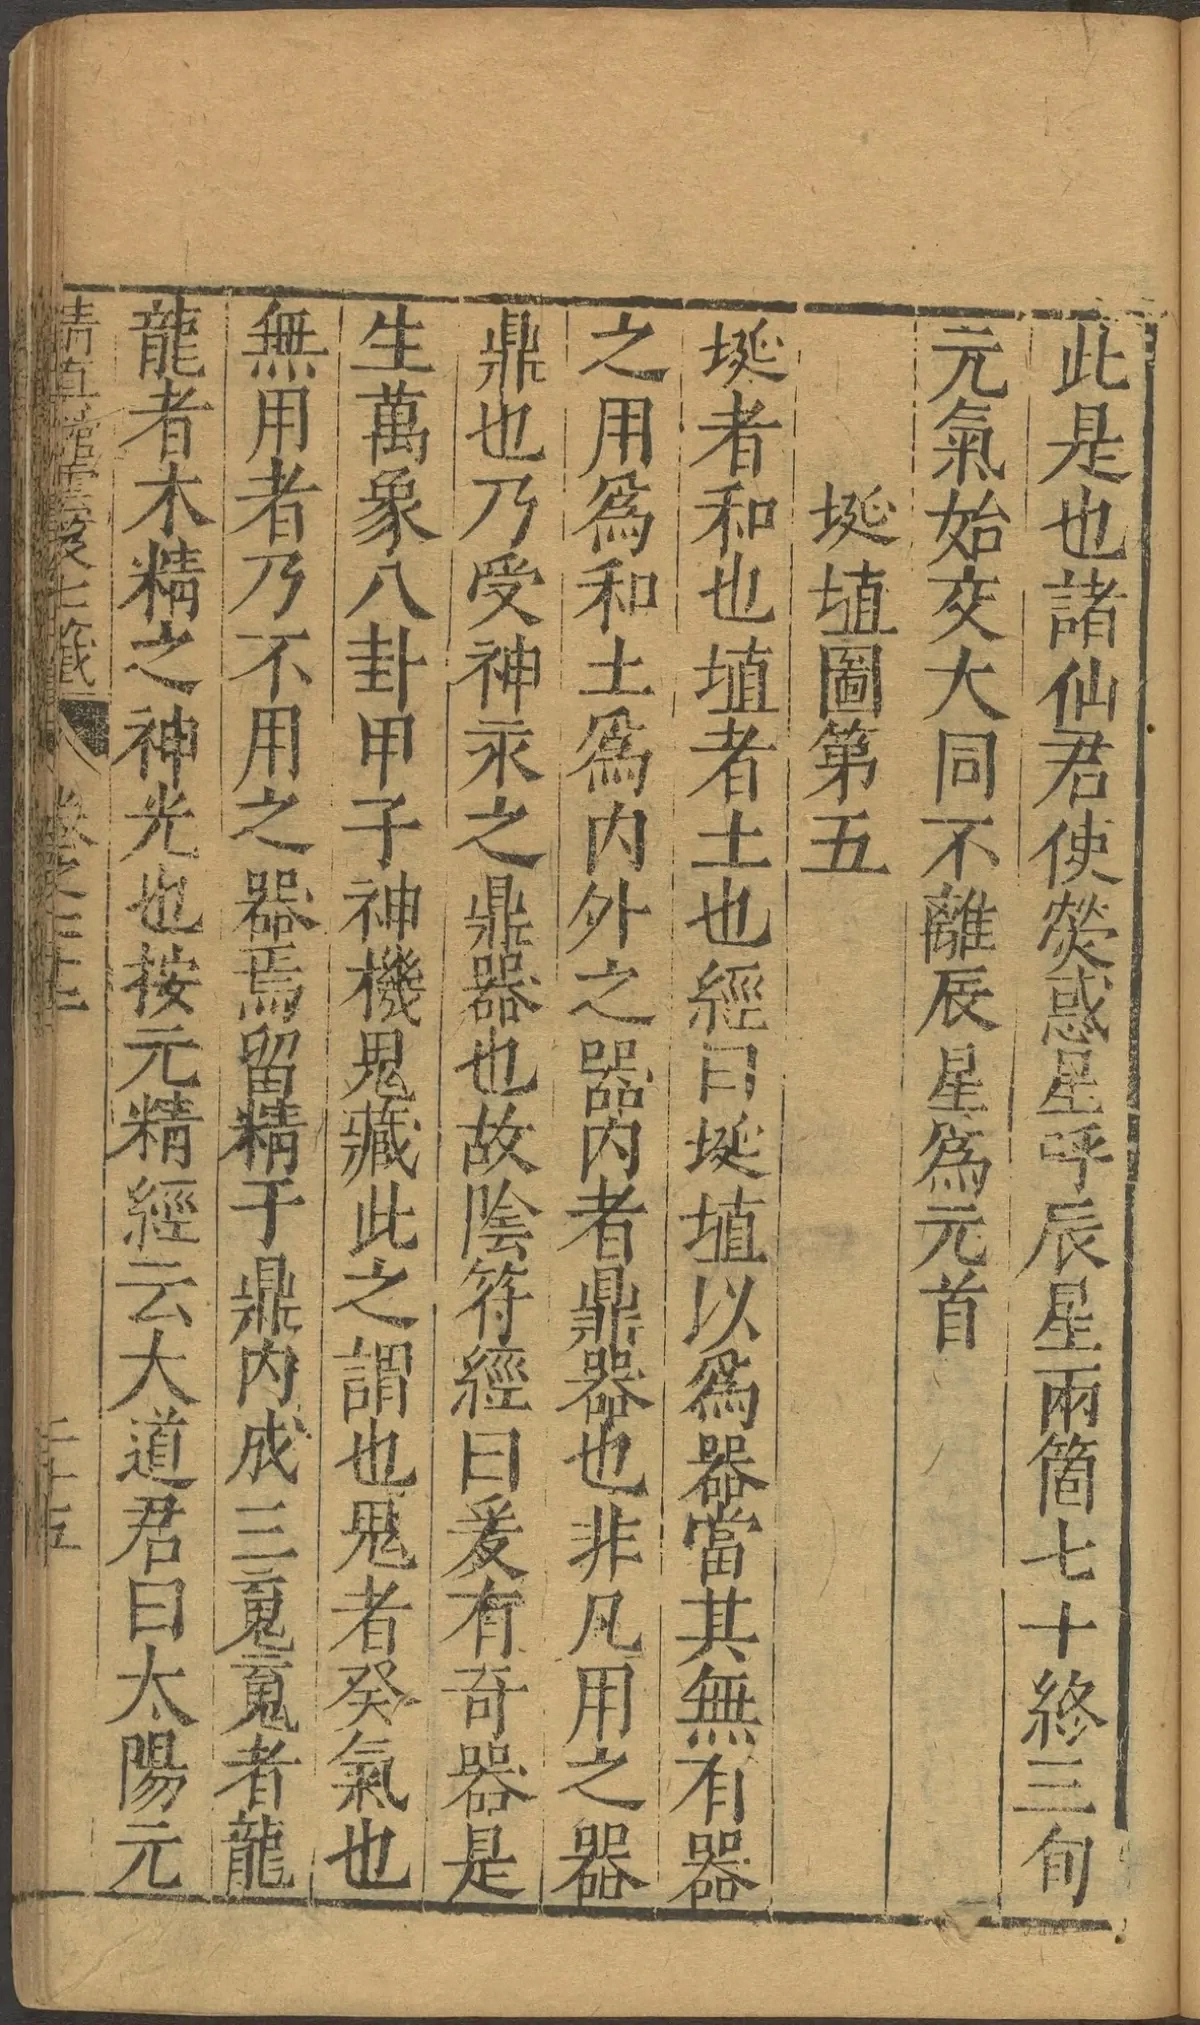 此是也諸仙君使熒惑星呼辰星兩箇七十終三旬
元氣始交大同不離辰星為元首
埏埴圖第五
埏者和也埴者土也經曰埏埴以為器當其無有器
之用為和土為内外之器内者鼎器也非凡用之器
鼎也乃受神汞之鼎器也故隂符經曰爰有奇器是
生萬象八卦甲子神機鬼藏此之謂也鬼者癸氣也
無用者乃不用之器焉留精于鼎内成三䰟䰟者龍
龍者木精之神光也按元精經云大道君曰太陽元
清真館雲笈七籤 卷之七十二 二十五